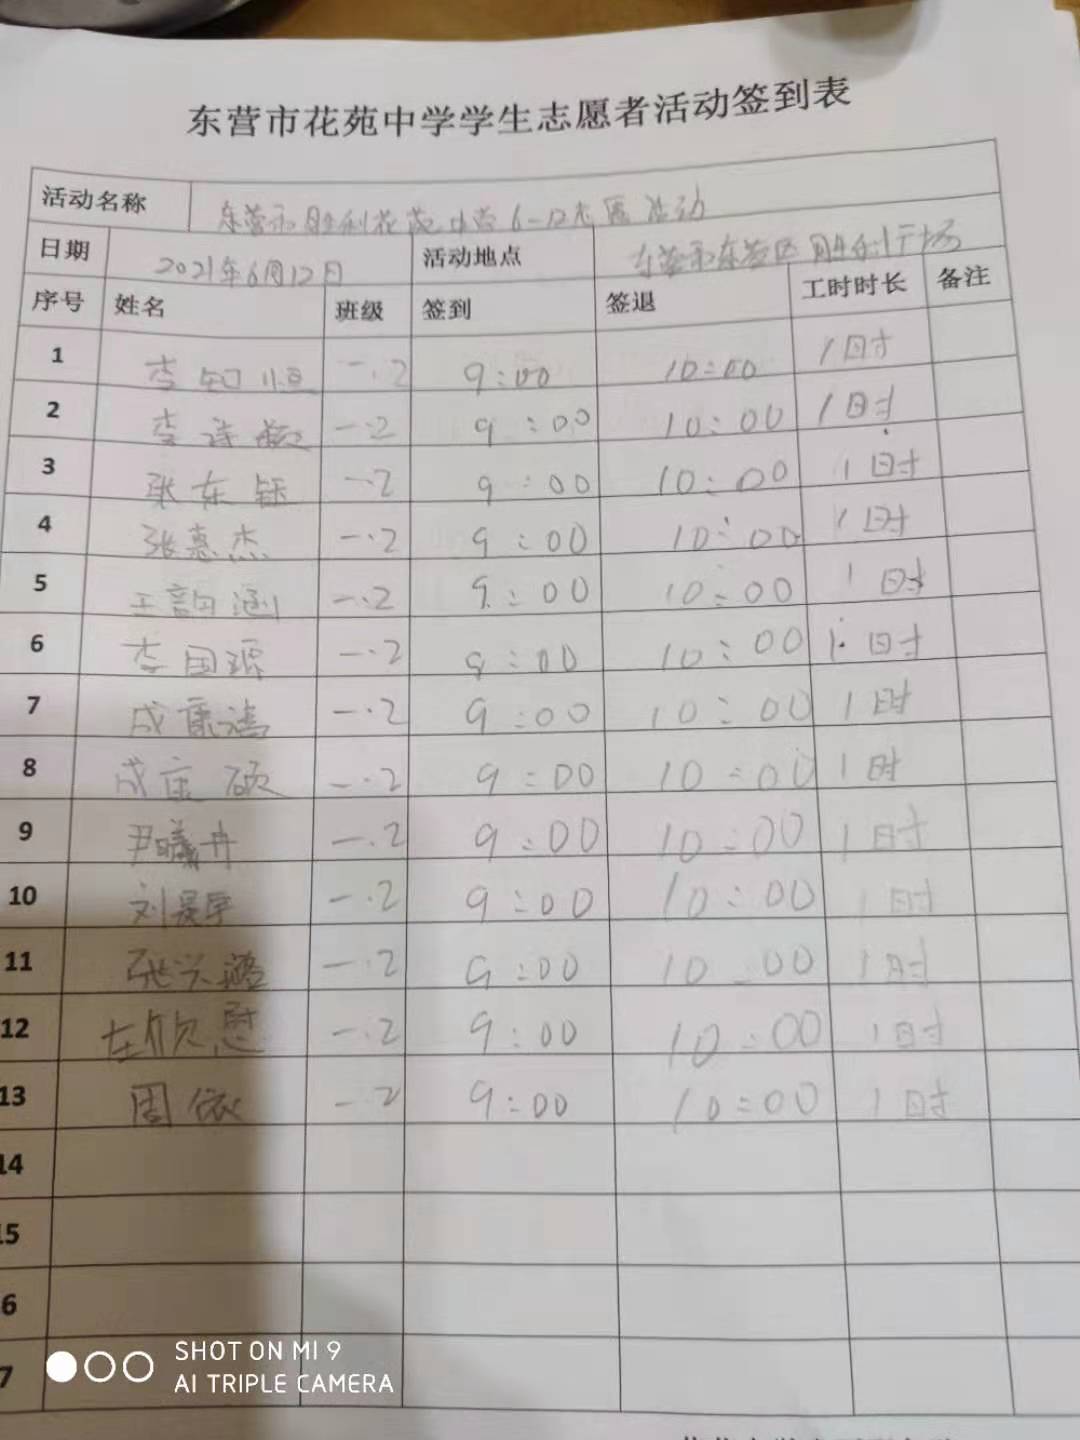 东营市花苑中学学生志愿者活动签到表
活动名称 东营市胜利花苑中学6-12志愿活动
日期 2021年6月12日 活动地点 东营市东营区胜利广场
序号 姓名 班级 签到 签退 工时时长 备注
1 李知恒 一.2 9:00 10:00 1时
2 李诗 一.2 9:00 10:00 1时
3 张东钰 一.2 9:00 10:00 1时
4 张惠杰 一.2 9:00 10:00 1时
5 王韵涵 一.2 9:00 10:00 1时
6 李国源 一.2 9:00 10:00 1时
7 成康 一.2 9:00 10:00 1时
8 成 硕 一.2 9:00 10:00 1时
9 尹曦冉 一.2 9:00 10:00 1时
10 刘昊宇 一.2 9:00 10:00 1时
11 张兴 一.2 9:00 10:00 1时
12 左欣慰 一.2 9:00 10:00 1时
13 周依 一.2 9:00 10:00 1时
14
15
6
7
SHOT ON MI 9
AI TRIPLE CAMERA